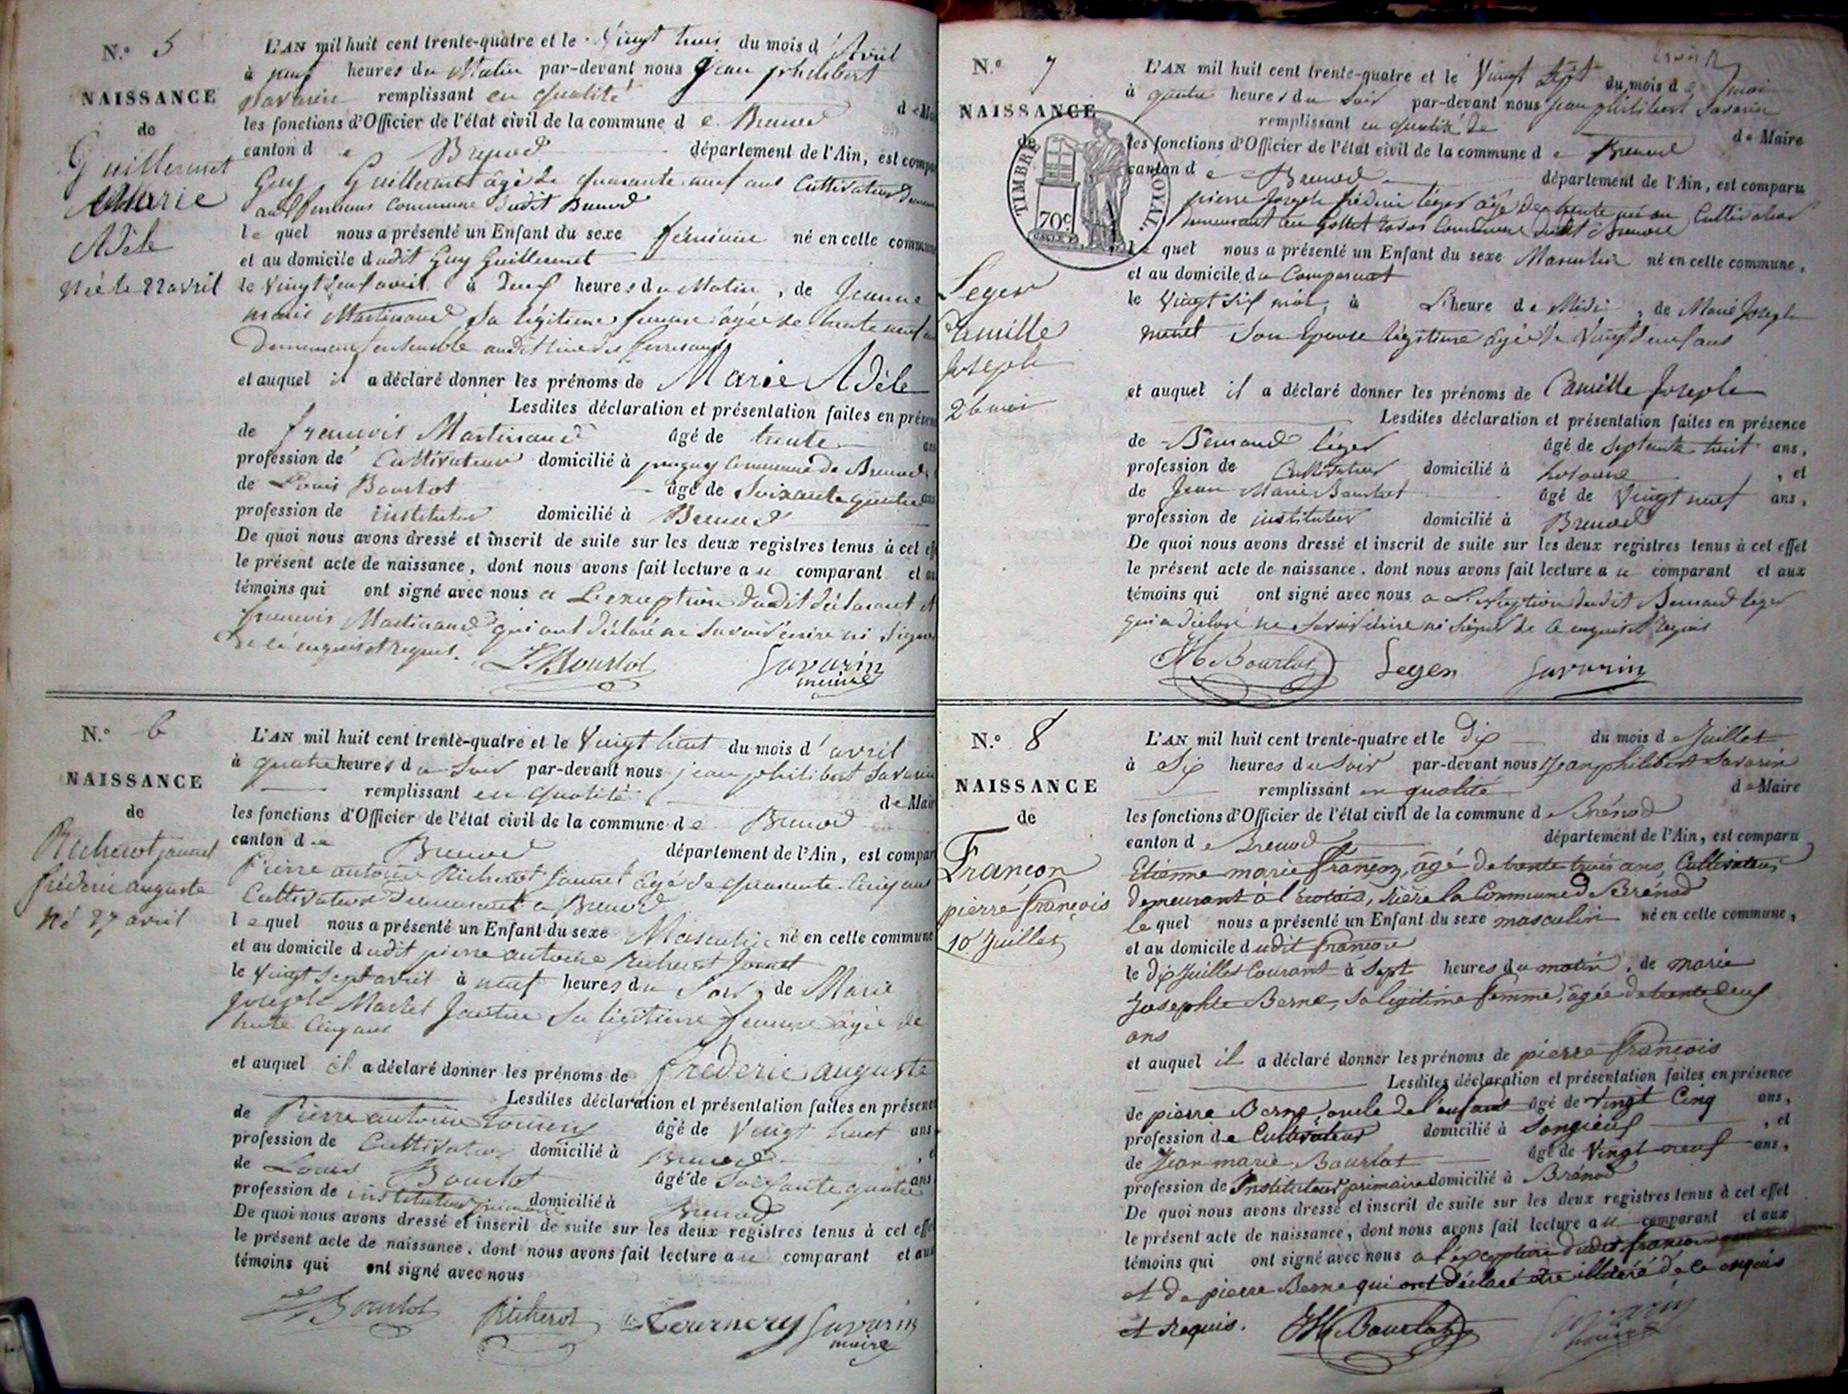 N.° 5
NAISSANCE
de
Guillermet
Marie
Adèle
Née le 22 avril
L'AN mil huit cent trente-quatre et le Vingt trois du mois d'Avril
à neuf heures du Matin par-devant nous Jean philibert
Savarin remplissant en qualité de Mai
les fonctions d'Officier de l'état civil de la commune de Brenod
canton de Brenod département de l'Ain, est compa
Guy Guillermet âgé de quarante neuf ans Cultivateur
aux ferrans Commune dudit Brenod
lequel nous a présenté un Enfant du sexe féminin né en cette commun
et au domicile dudit Guy Guillermet
le Vingt deux avril à Deux heures du Matin, de Jeanne
marie Martinand Sa légitime femme âgée de trente neuf
Demeurant ensemble audit lieu des ferrans
et auquel il a déclaré donner les prénoms de Marie Adèle
Lesdites déclaration et présentation faites en présen
de francois Martinand âgé de trente ans
profession de Cultivateur domicilié à Commune de Brenod,
de Louis Bourlot âgé de Soixante quatre ans
profession de instituteur domicilié à Brenod
De quoi nous avons dressé et inscrit de suite sur les deux registres tenus à cet eff
le présent acte de naissance, dont nous avons fait lecture au comparant et au
témoins qui ont signé avec nous a L'exception dudit déclarant et
francois Martinand qui ont déclaré ne Savoir écrire ni Signer
de ce enquis et requis. L Bourlot Savarin
maire
N.° 6
NAISSANCE
de
Richerot jaunet
fréderic auguste
Né 27 avril
L'AN mil huit cent trente-quatre et le Vingt huit du mois d'avril
à quatre heures du Soir par-devant nous jean philibert Savarin
remplissant en qualité de Mair
les fonctions d'Officier de l'état civil de la commune de Brenod
canton de Brenod département de l'Ain, est compar
Pierre antoine Richerot Jaunet âgé de quarante Cinq ans
Cultivateur Demeurant a Brenod
lequel nous a présenté un Enfant du sexe Masculin né en cette commune
et au domicile dudit pierre antoine Richerot Jaunet
le Vingt Sept avril à neuf heures du Soir, de Marie
Josephte Sa légitime femme âgée de
trente Cinq ans
et auquel il a déclaré donner les prénoms de fréderic auguste
Lesdites déclaration et présentation faites en présenc
de Pierre antoine âgé de Vingt huit ans
profession de Cultivateur domicilié à Brenod
de Louis Bourlot âgé de Soixante quatre ans
profession de instituteur primaire domicilié à Brenod
De quoi nous avons dressé et inscrit de suite sur les deux registres tenus à cet effe
le présent acte de naissance, dont nous avons fait lecture au comparant et aux
témoins qui ont signé avec nous
L Bourlot Richerot Savarin
maire
N.° 7
NAISSANCE
de
TIMBRE ROYAL.
70c
Leger
Camille
Joseph
26 mai
L'AN mil huit cent trente-quatre et le Vingt Sept du mois de mai
à quatre heures du Soir par-devant nous Jean philibert Savarin
remplissant en qualité de de Maire
les fonctions d'Officier de l'état civil de la commune de Brenod
canton de Brenod département de l'Ain, est comparu
pierre Joseph fréderic léger âgé de trente un an Cultivateur
demeurant Commune dudit Brenod
lequel nous a présenté un Enfant du sexe Masculin né en cette commune,
et au domicile du Comparant
le Vingt Six mai, à L'heure de Midi, de Marie Joseph
Son Epouse légitime âgée de Vingt deux ans
et auquel il a déclaré donner les prénoms de Camille Joseph
Lesdites déclaration et présentation faites en présence
de Bernard léger âgé de Septante huit ans,
profession de Cultivateur domicilié à , et
de Jean Marie Bourlot âgé de Vingt neuf ans,
profession de instituteur domicilié à Brenod
De quoi nous avons dressé et inscrit de suite sur les deux registres tenus à cet effet
le présent acte de naissance, dont nous avons fait lecture au comparant et aux
témoins qui ont signé avec nous a L'exception dudit Bernard léger
qui a déclaré ne Savoir écrire ni Signer de ce enquis et requis
JM Bourlot Leger Savarin
N.° 8
NAISSANCE
de
Françon
pierre françois
10 Juillet
L'AN mil huit cent trente-quatre et le dix du mois de Juillet
à Six heures du Soir par-devant nous Jean philibert Savarin
remplissant en qualité de Maire
les fonctions d'Officier de l'état civil de la commune de Brénod
canton de Brenod département de l'Ain, est comparu
Etienne marie françon, âgé de trente trois ans, Cultivateur
demeurant à rière la Commune de Brénod
lequel nous a présenté un Enfant du sexe masculin né en cette commune,
et au domicile dudit françon
le dix Juillet Courant à Sept heures du matin, de marie
Josephte Berne, Sa legitime femme, âgée de trente deux
ans
et auquel il a déclaré donner les prénoms de pierre françois
Lesdites déclaration et présentation faites en présence
de pierre Berne, oncle de l'enfant âgé de Vingt Cinq ans,
profession de Cultivateur domicilié à Songieux, et
de Jean marie Bourlot âgé de Vingt neuf ans,
profession de Instituteur primaire domicilié à Brénod
De quoi nous avons dressé et inscrit de suite sur les deux registres tenus à cet effet
le présent acte de naissance, dont nous avons fait lecture au comparant et aux
témoins qui ont signé avec nous a l'exception dudit françon
et de pierre Berne qui ont déclaré être illitéré de ce enquis
et requis. JM Bourlot Savarin
maire